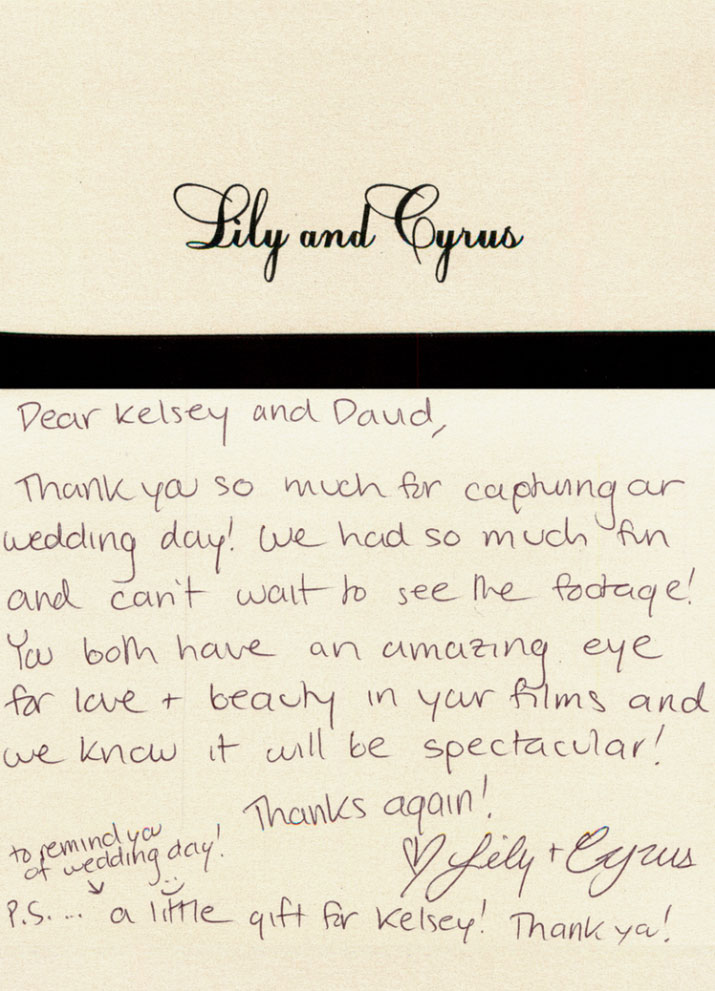 Lily and Cyrus
Dear Kelsey and David,
Thank you so much for capturing our
wedding day! We had so much fun
and can't wait to see the footage!
You both have an amazing eye
for love + beauty in your films and
we know it will be spectacular!
Thanks again!
♡ Lily + Cyrus
to remind you
of wedding day!
P.S. ... a little gift for Kelsey! Thank you!